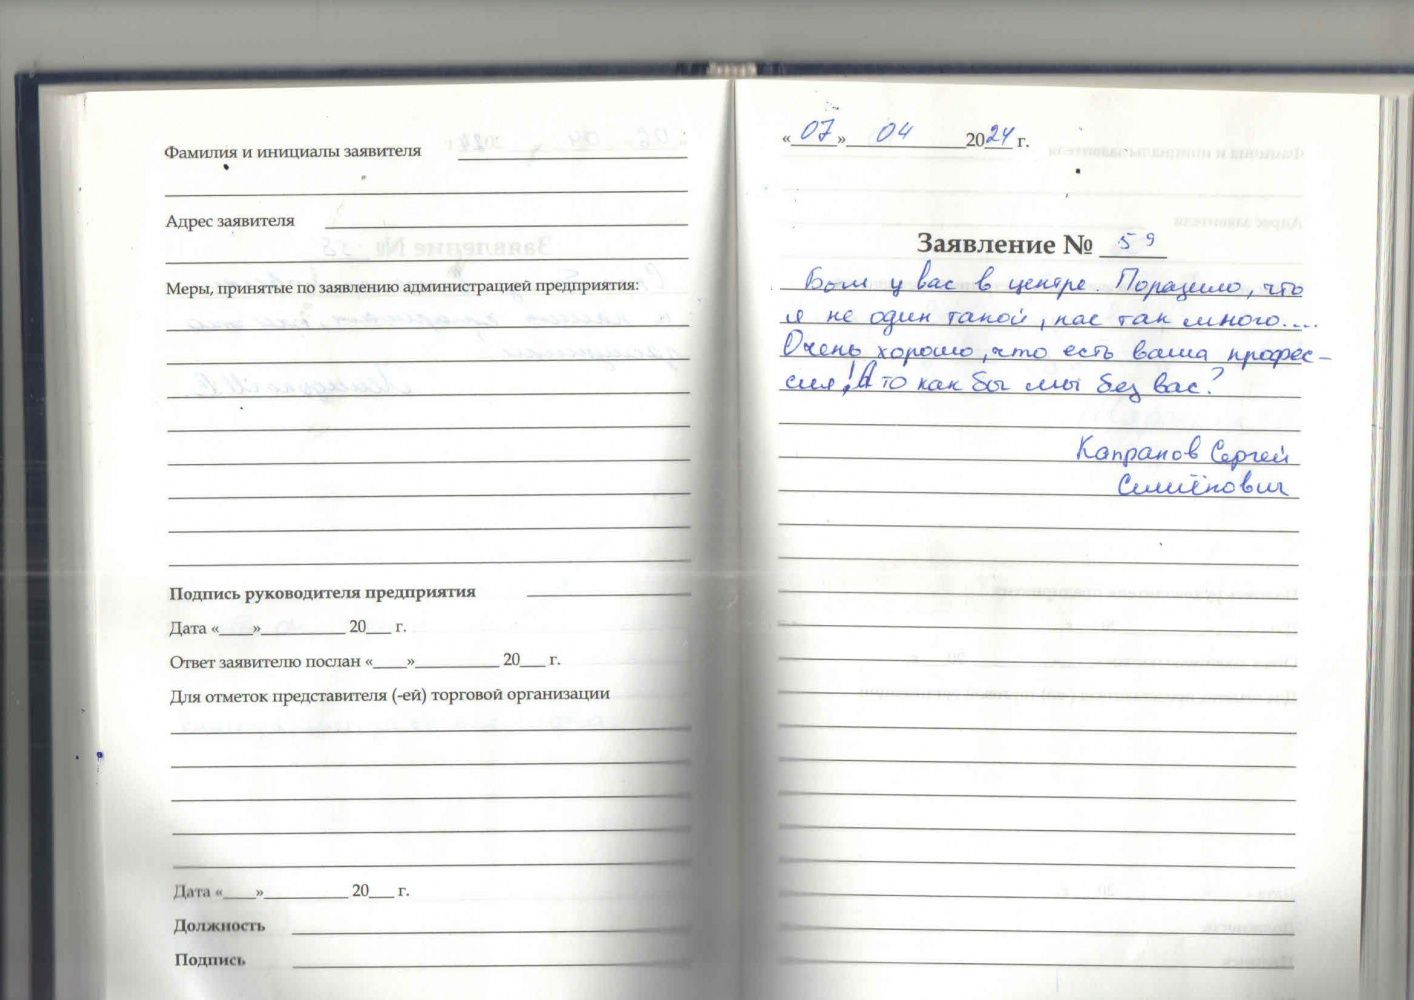 Фамилия и инициалы заявителя
Адрес заявителя
Меры, принятые по заявлению администрацией предприятия:
Подпись руководителя предприятия
Дата «____»__________ 20___ г.
Ответ заявителю послан «____»__________ 20___ г.
Для отметок представителя (-ей) торговой организации
Дата «____»__________ 20___ г.
Должность
Подпись
«07» 04 2024 г.
Заявление № 59
Был у вас в центре. Поразило, что
я не один такой, нас так много....
Очень хорошо, что есть ваша профес-
сия! А то как бы мы без вас?
Капранов Сергей
Семёнович